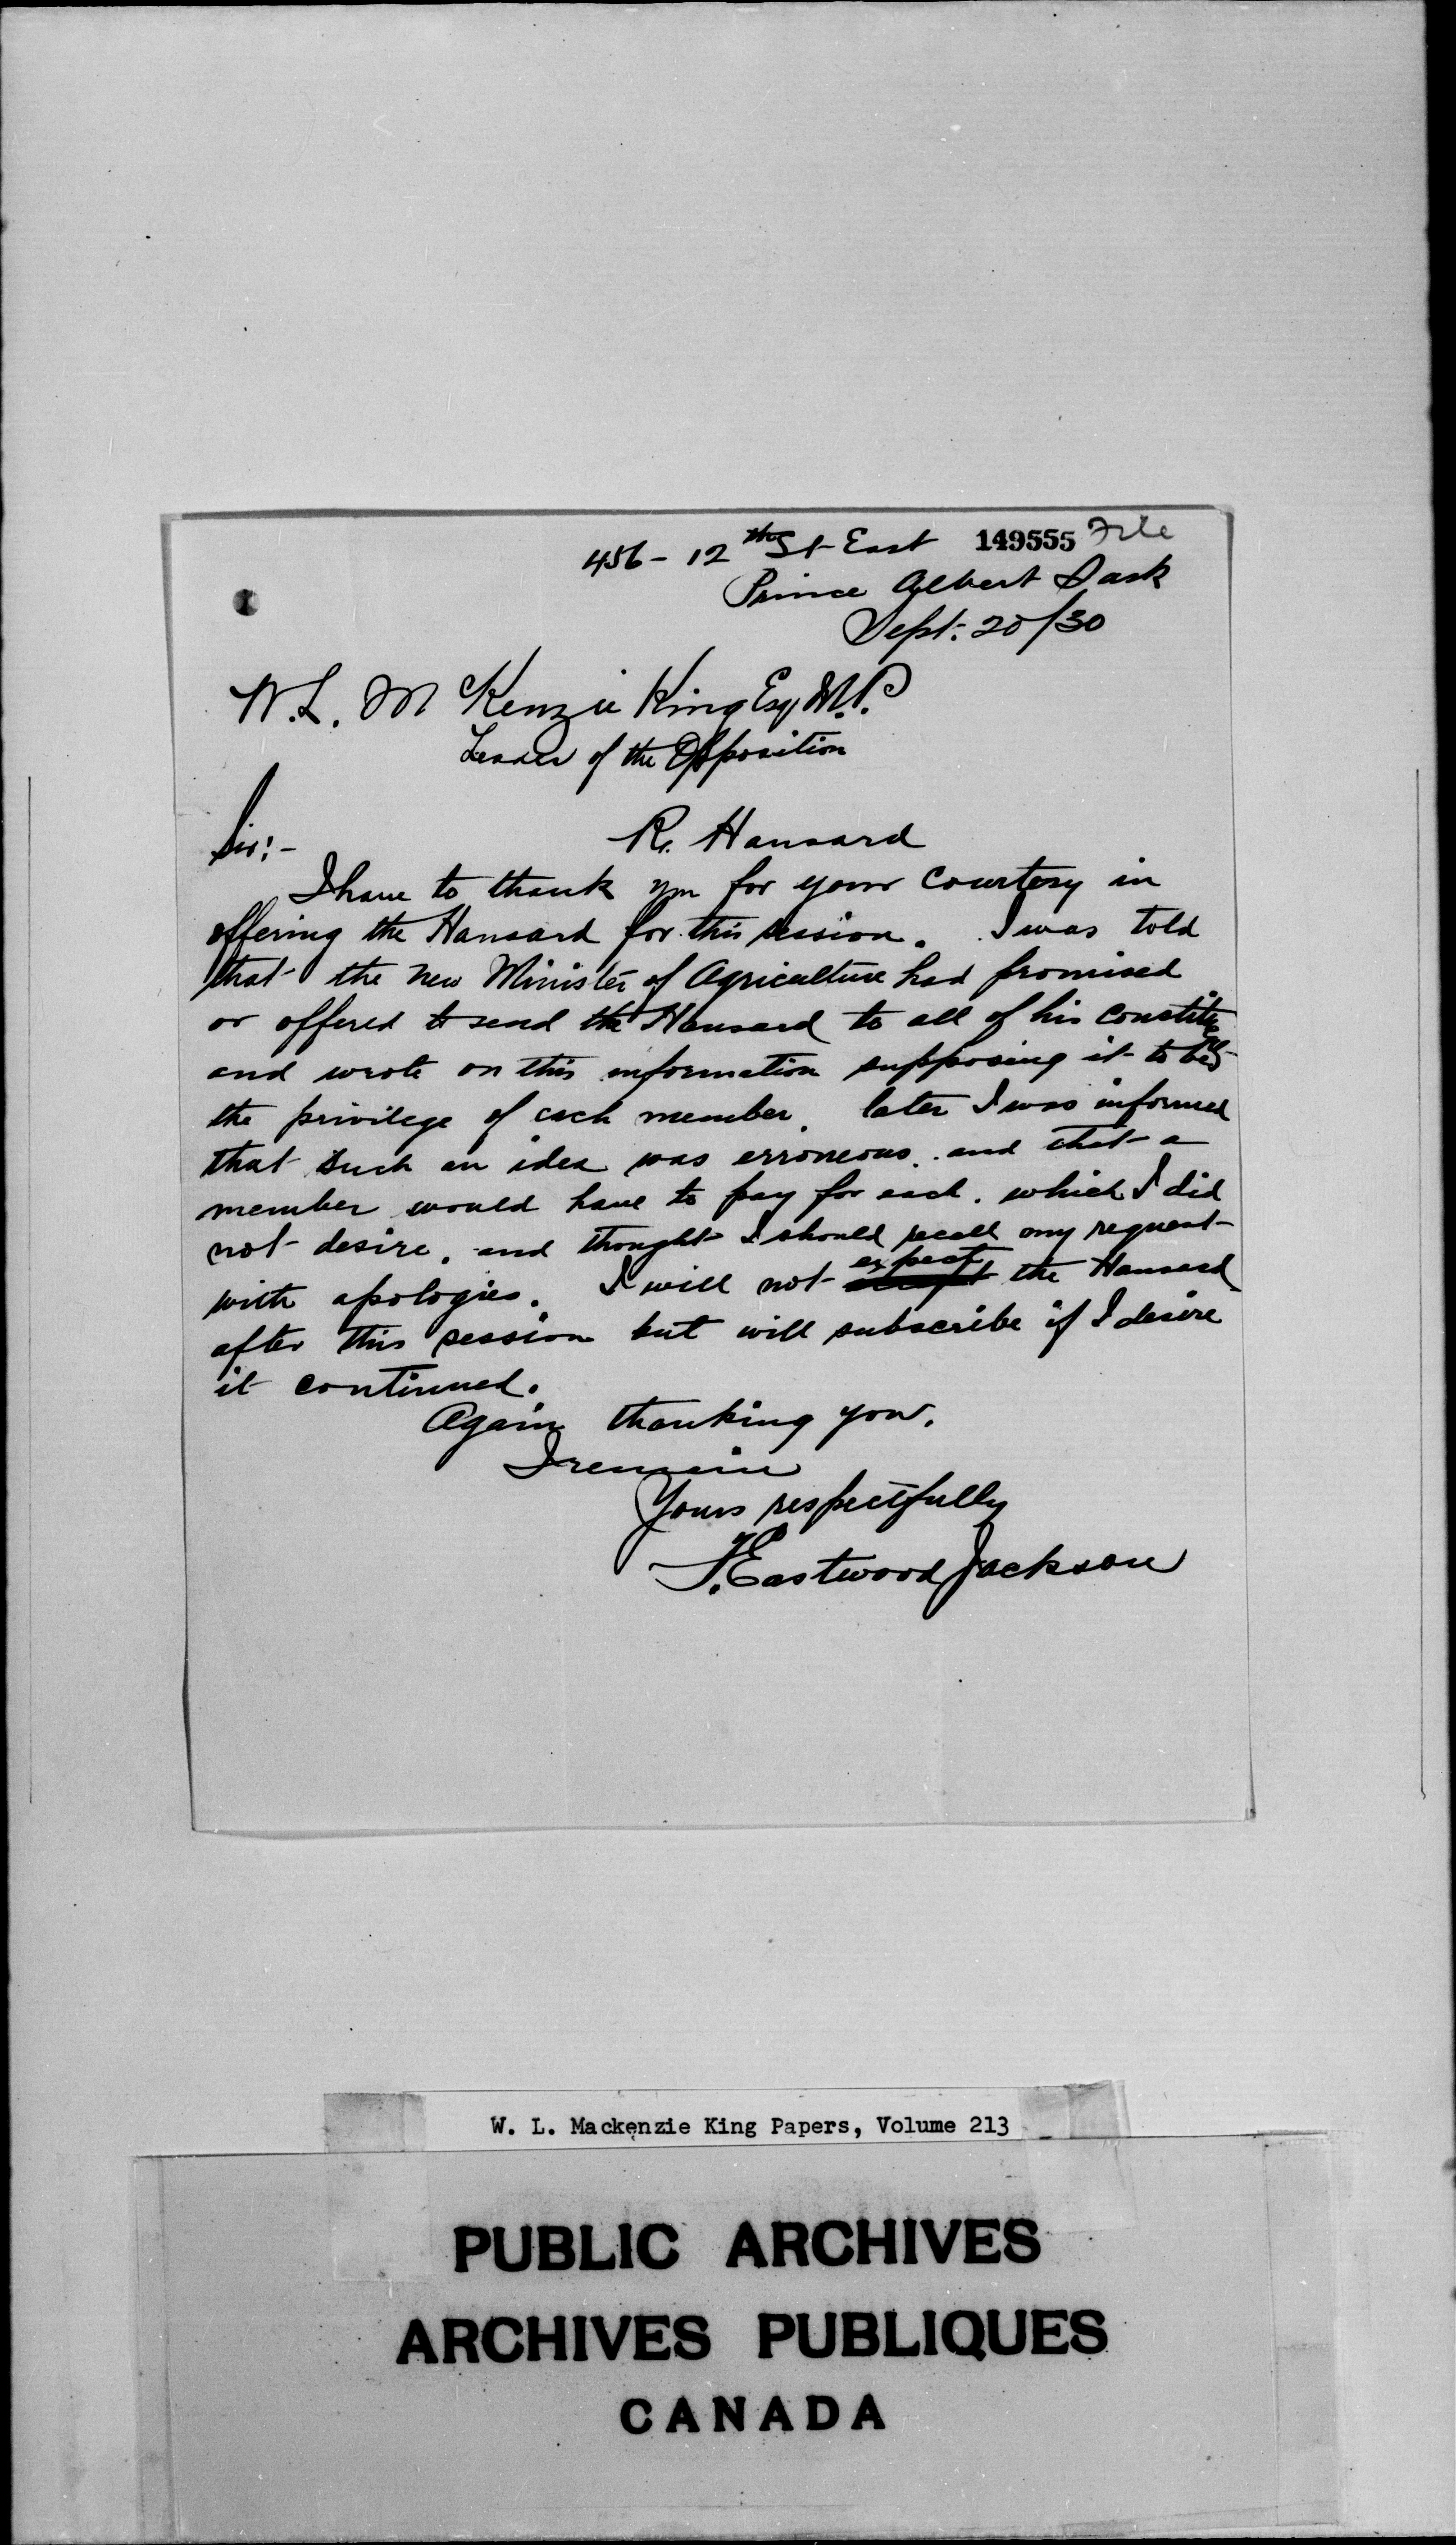 456 - 12th St East 149555 File
Prince Albert Sask
Sept. 20/30
W. L. M Kenzie King Esq M.P.
Leader of the Opposition
Sir:- R. Hansard
I have to thank you for your courtesy in
offering the Hansard for this session. I was told
that the new Minister of Agriculture had promised
or offered to send the Hansard to all of his constituents
and wrote on this information supposing it to be
the privilege of each member. later I was informed
that such an idea was erroneous. and that a
member would have to pay for each. which I did
not desire. and thought I should recall my request
with apologies. I will not expect the Hansard
after this session but will subscribe if I desire
it continued.
Again thanking you.
I remain
Yours respectfully
T. Eastwood Jackson
W. L. Mackenzie King Papers, Volume 213
PUBLIC ARCHIVES
ARCHIVES PUBLIQUES
CANADA